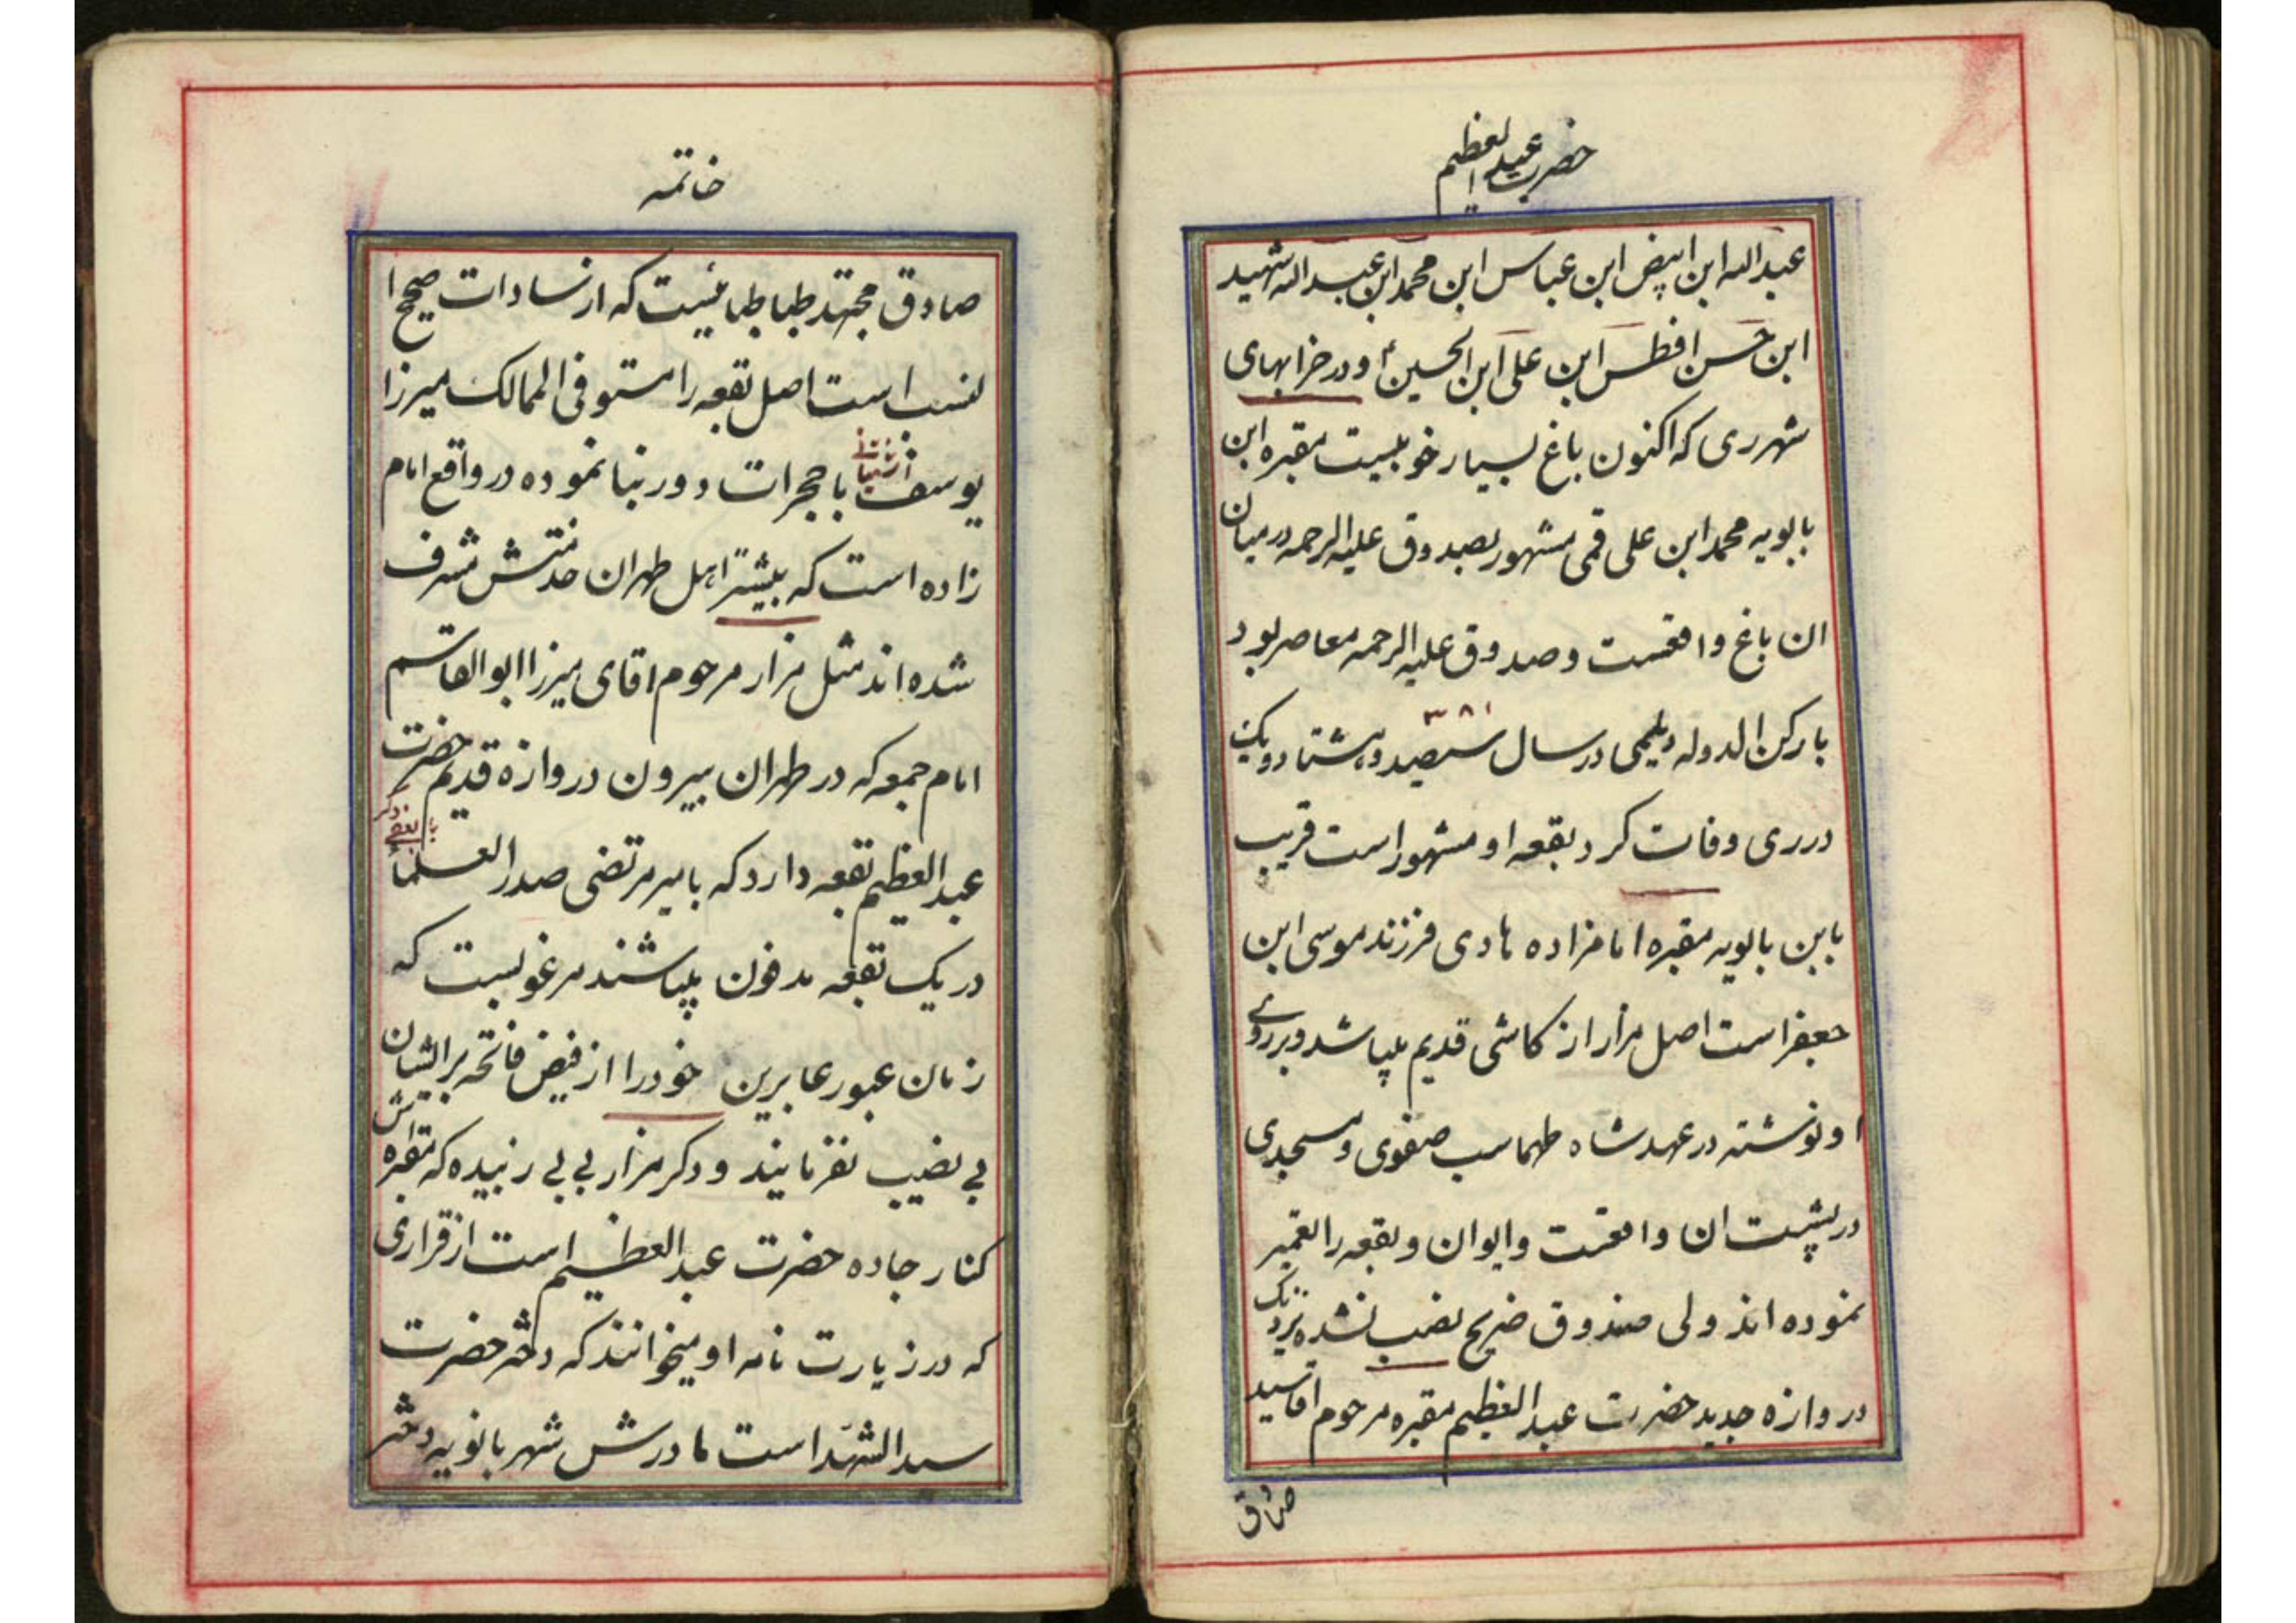 حضرت عبدالعظیم
عبدالله ابن ابیض ابن عباس ابن محمد ابن عبدالله شهید
ابن حسن افطس ابن علی ابن الحسین ع و در خرابهای
شهر ری که اکنون باغ بسیار خوبیست مقبره ابن
بابویه محمد ابن علی قمی مشهور بصدوق علیه الرحمه در میان
ان باغ واقعست و صدوق علیه الرحمه معاصر بود
با رکن الدوله دیلمی در سال سیصد و هشتاد و یک
۳۸۱
در ری وفات کرد بقعه او مشهور است قریب
بابن بابویه مقبره امامزاده هادی فرزند موسی ابن
جعفر است اصل مزار از کاشی قدیم میباشد و بر روی
او نوشته در عهد شاه طهماسب صفوی و مسجدی
در پشت ان واقعست و ایوان و بقعه را تعمیر
نموده اند ولی صندوق ضریح نصب نشده نزدیک
دروازه جدید حضرت عبدالعظیم مقبره مرحوم اقا سید
صادق
خاتمه
صادق مجتهد طباطبائیست که از سادات صحیح ا
لنسب است اصل بقعه را مستوفی الممالک میرزا
یوسف اشتیانی با حجرات دور بنا نموده در واقع امام
زاده است که بیشتر اهل طهران خدمتش مشرف
شده اند مثل مزار مرحوم اقای میرزا ابوالقاسم
امام جمعه که در طهران بیرون دروازه قدیم حضرت
عبدالعظیم بقعه دارد که با میر مرتضی صدرالعلماء
با بعضی دگر
در یک بقعه مدفون میباشند مرغوبست که
زمان عبور عابرین خود را از فیض فاتحه بر ایشان
بی نصیب نفرمایند و دکر مزار بی بی زبیده که مقبره اش
کنار جاده حضرت عبدالعظیم است از قراری
که در زیارت نامه او میخوانند که دختر حضرت
سیدالشهدا است مادرش شهربانویه دختر